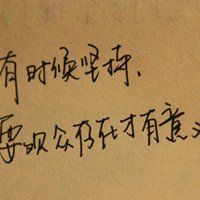 有时候坚持,
要观众存在才有意义